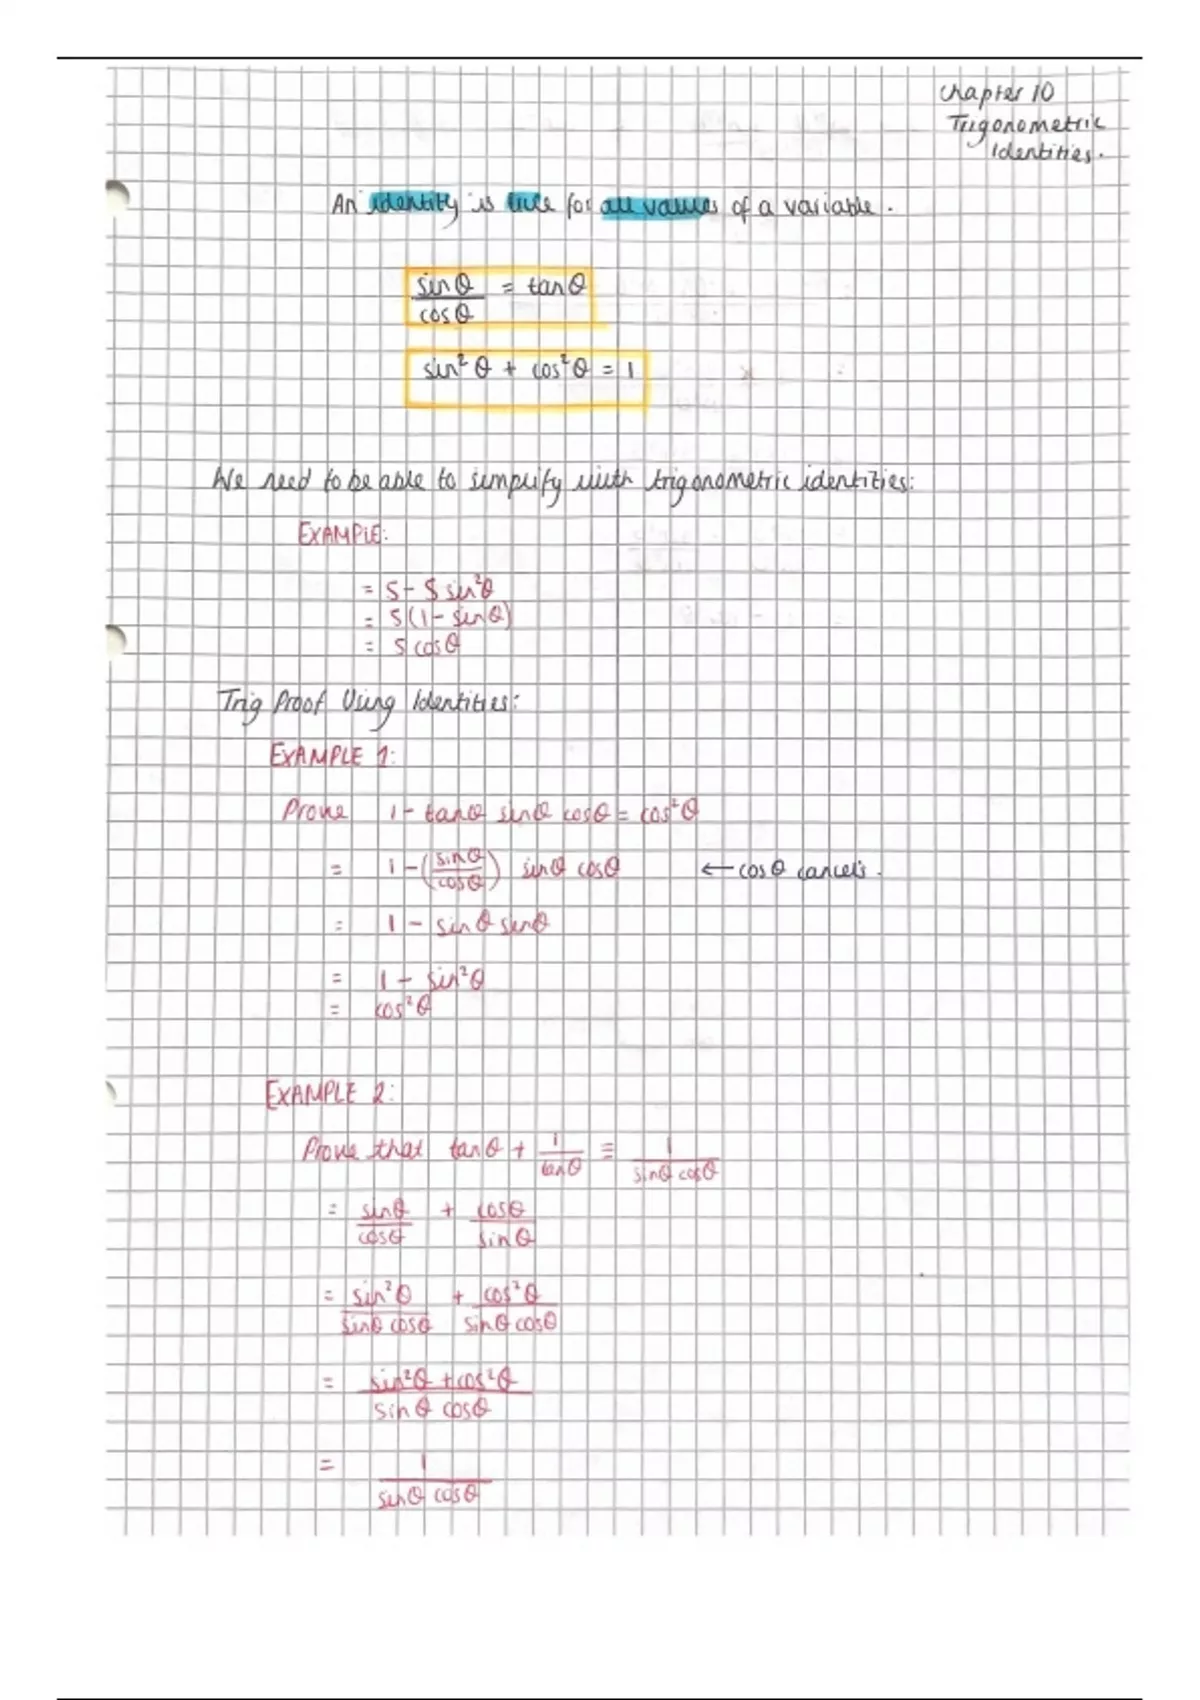 Chapter 10
Trigonometric
Identities.
An identity is true for all values of a variable.
sinθ/cosθ = tanθ
sin²θ + cos²θ = 1
We need to be able to simplify with trigonometric identities:
EXAMPLE:
= 5 - 5 sin²θ
= 5(1 - sinθ)
= 5 cosθ
Trig Proof Using Identities:
EXAMPLE 1:
Prove 1 - tanθ sinθ cosθ = cos²θ
= 1 - (sinθ/cosθ) sinθ cosθ ← cosθ cancels.
= 1 - sinθ sinθ
= 1 - sin²θ
= cos²θ
EXAMPLE 2:
Prove that tanθ + 1/tanθ ≡ 1/sinθ cosθ
= sinθ/cosθ + cosθ/sinθ
= sin²θ/sinθ cosθ + cos²θ/sinθ cosθ
= sin²θ + cos²θ/sinθ cosθ
= 1/sinθ cosθ